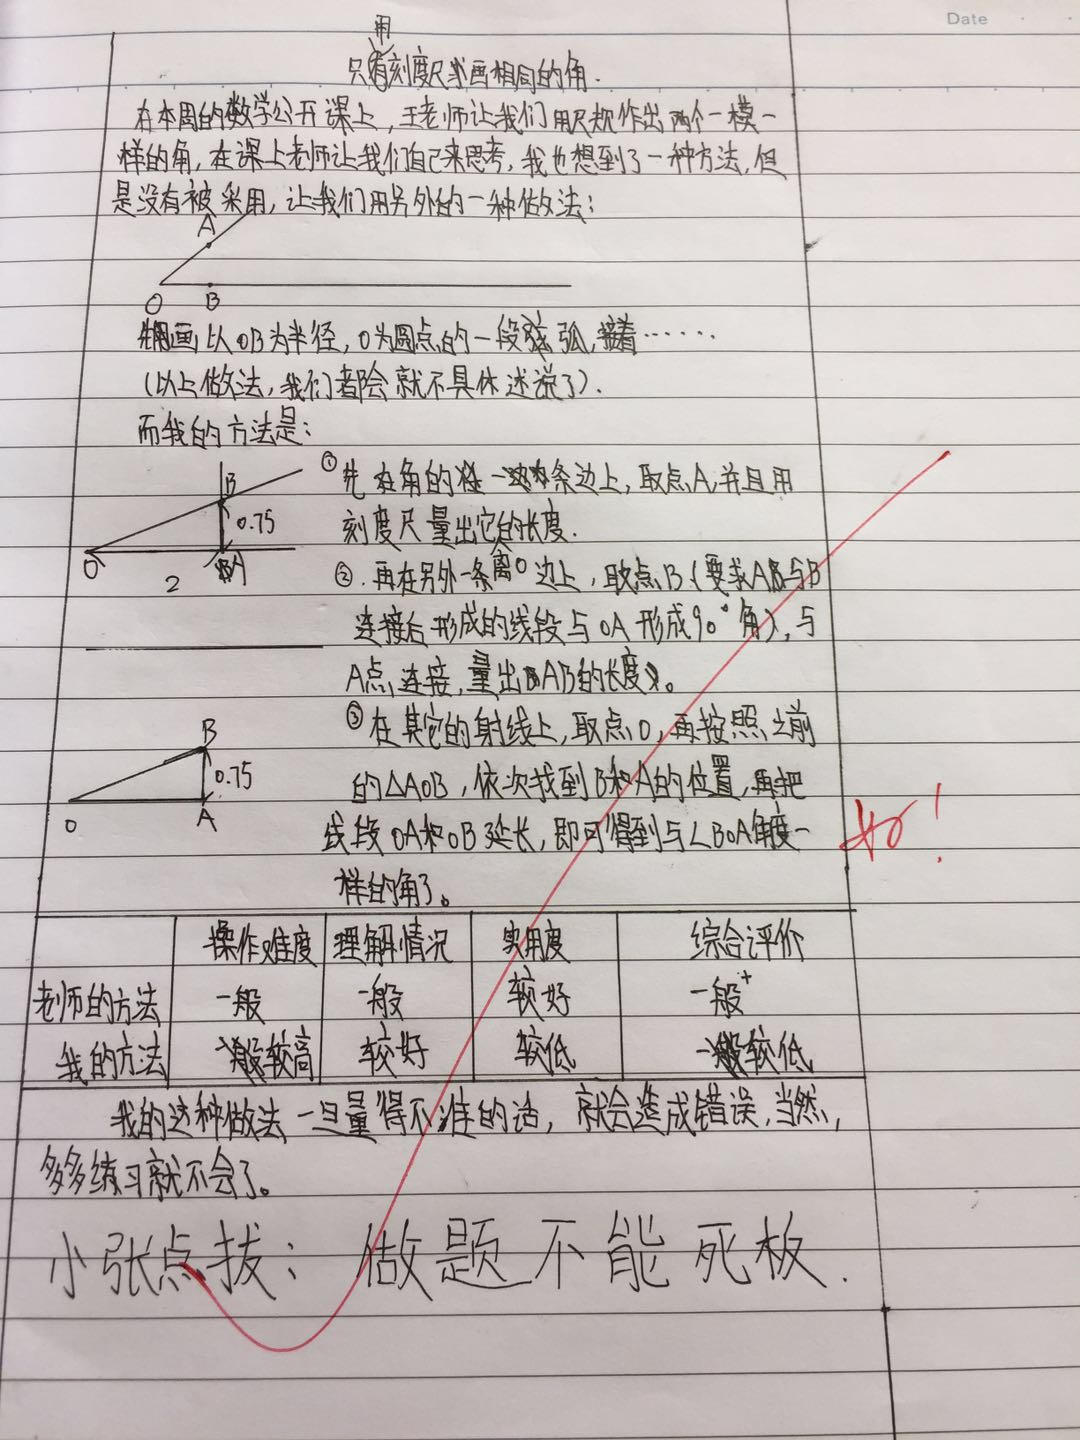 Date
只用刻度尺来画相同的角.
在本周的数学公开课上,王老师让我们用尺规作出两个一模一
样的角,在课上老师让我们自己来思考,我也想到了一种方法,但
是没有被采用,让我们用另外的一种做法:
A
O B
先画以OB为半径,O为圆点的一段弧,接着……
(以上做法,我们都会就不具体述说了).
而我的方法是:
①先在角的任一条边上,取点A,并且用
刻度尺量出它离O的长度.
②.再在另外一条边上,取点B(要求A与B
连接后形成的线段与OA形成90°角),与
A点连接,量出AB的长度。
B
0.75
O 2 A
③在其它的射线上,取点O,再按照之前
的△AOB,依次找到B和A的位置,再把
线段OA和OB延长,即可得到与∠BOA角度一
样的角了。
B
0.75
O A
好!
操作难度 理解情况 实用度 综合评价
老师的方法 一般 一般 较好 一般+
我的方法 较高 较好 较低 较低
我的这种做法一旦量得不准的话,就会造成错误,当然,
多多练习就不会了。
小张点拔: 做题不能死板.